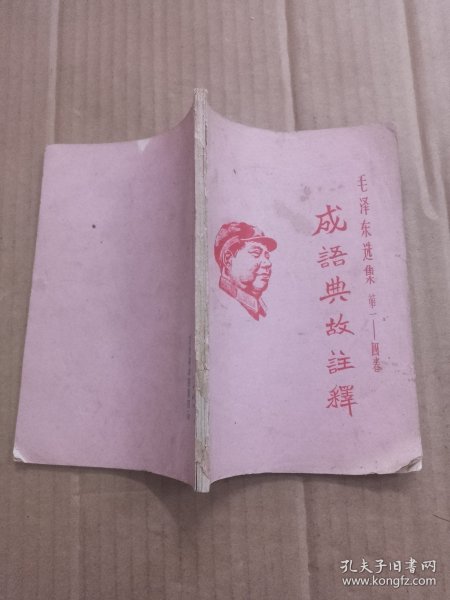 毛泽东选集 第一——四卷
成語典故註釋
孔夫子旧书网
www.kongfz.com